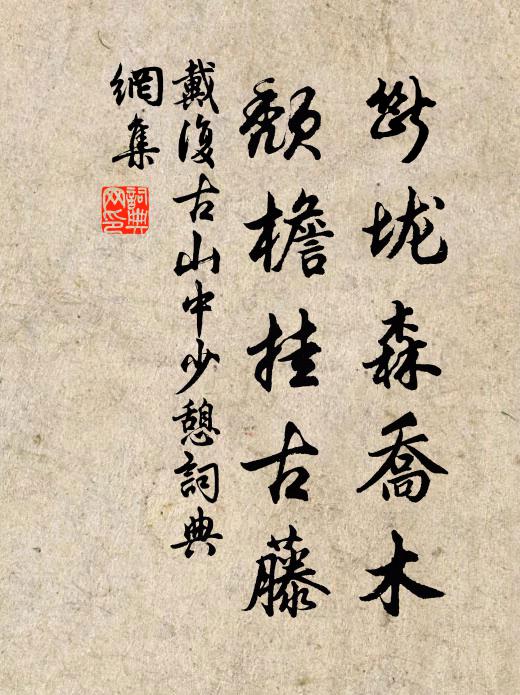 斷垅森喬木
頽檐挂古藤
戴復古山中少憩詞典
網集
詞典
网印